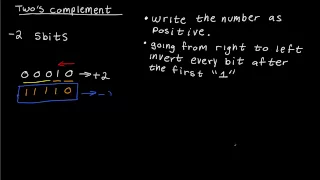 Two's complement
-2 5bits
0 0 0 1 0 → +2
1 1 1 1 0 → -
• write the number as
positive.
• going from right to left
invert every bit after
the first "1"